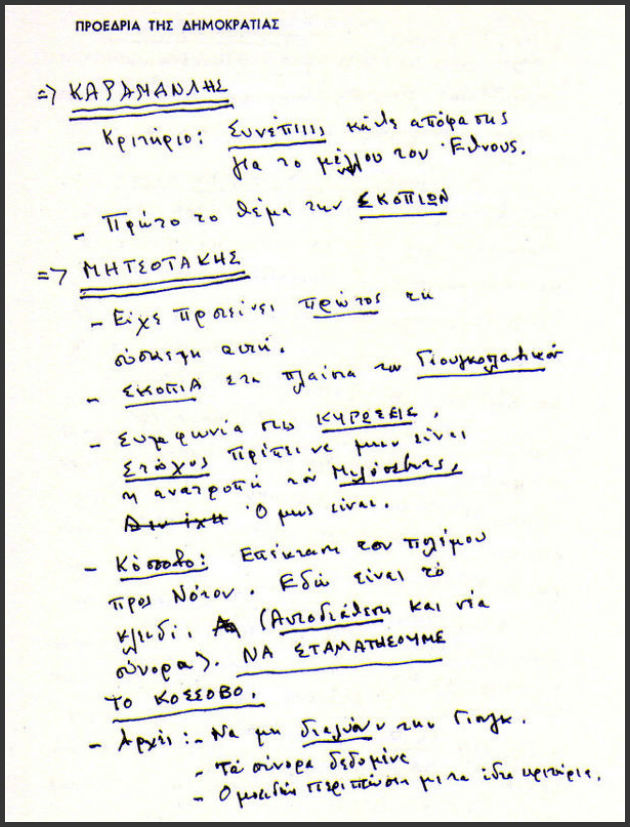 ΠΡΟΕΔΡΙΑ ΤΗΣ ΔΗΜΟΚΡΑΤΙΑΣ
=> ΚΑΡΑΜΑΝΛΗΣ
- Κριτήριο: Συνέπειες κάθε απόφασης
για το μέλλον του Έθνους.
- Πρώτο το θέμα των ΣΚΟΠΙΩΝ
=> ΜΗΤΣΟΤΑΚΗΣ
- Είχε προτείνει πρώτος τη
σύσκεψη αυτή.
- ΣΚΟΠΙΑ στα πλαίσια των Γιουγκοσλαβικών
- Συμφωνία στις ΚΥΡΩΣΕΙΣ.
Στόχος πρέπει να μην είναι
η ανατροπή του Μιλόσεβιτς.
Δεν έχει Όμως είναι.
- Κόσοβο: Επέκταση του πολέμου
προς Νότον. Εδώ είναι το
κλειδί. (Αυτοδιάθεση και νέα
σύνορα). ΝΑ ΣΤΑΜΑΤΗΣΟΥΜΕ
ΤΟ ΚΟΣΣΟΒΟ.
- Αρχές: - Να μη διαλυθ την Γιουγκ.
- Τα σύνορα δεδομένα
- περίπτωση με τα ίδια κριτήρια.